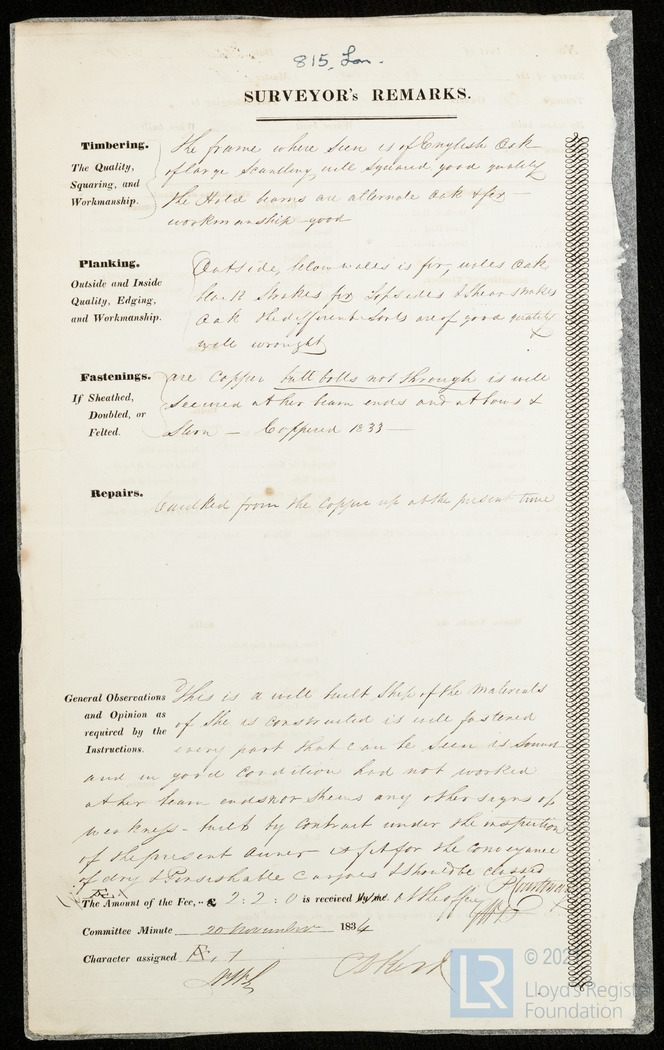 815, Lon.
SURVEYOR's REMARKS.
Timbering.
The Quality,
Squaring, and
Workmanship.
The frame where seen is of English Oak
of large Scantling, well squared good quality
the Hold beams are alternate Oak & fir
workmanship good
Planking.
Outside and Inside
Quality, Edging,
and Workmanship.
Outside, below wales is fir, wales Oak
Strakes fir Topsides & Shear strakes
Oak the different sorts are of good quality
well wrought
Fastenings.
If Sheathed,
Doubled, or
Felted.
are Copper butt bolts not through is well
Secured at her beam ends and at bows &
Stern — Coppered 1833 —
Repairs.
Caulked from the Copper up at the present time
General Observations
and Opinion as
required by the
Instructions.
This is a well built Ship of the Materials
of She is constructed is well fastened
every part that can be seen is Sound
and in good condition had not worked
at her beam ends nor shews any other signs of
weakness - built by Contract under the inspection
of the present Owner is fit for the conveyance
of dry & Perishable Cargoes & should be classed
The Amount of the Fee, - £ 2 : 2 : 0 is received by me. at the office
Committee Minute 20 November 1834
Character assigned Æ. 1
LR
© 202
Lloyd's Registe
Foundation